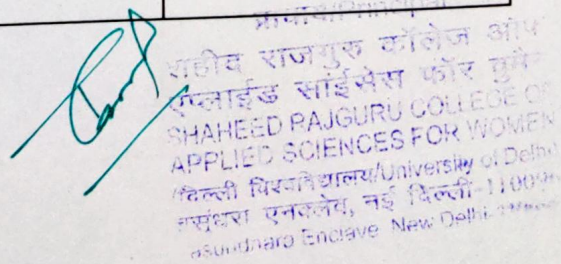 प्राचार्य/Principal
शहीद राजगुरु कॉलेज ऑफ
एप्लाईड साईंसेस फॉर वुमैन
SHAHEED RAJGURU COLLEGE OF
APPLIED SCIENCES FOR WOMEN
दिल्ली विश्वविद्यालय/University of Delhi
वसुंधरा एनक्लेव, नई दिल्ली-1100
Enclave New Delhi